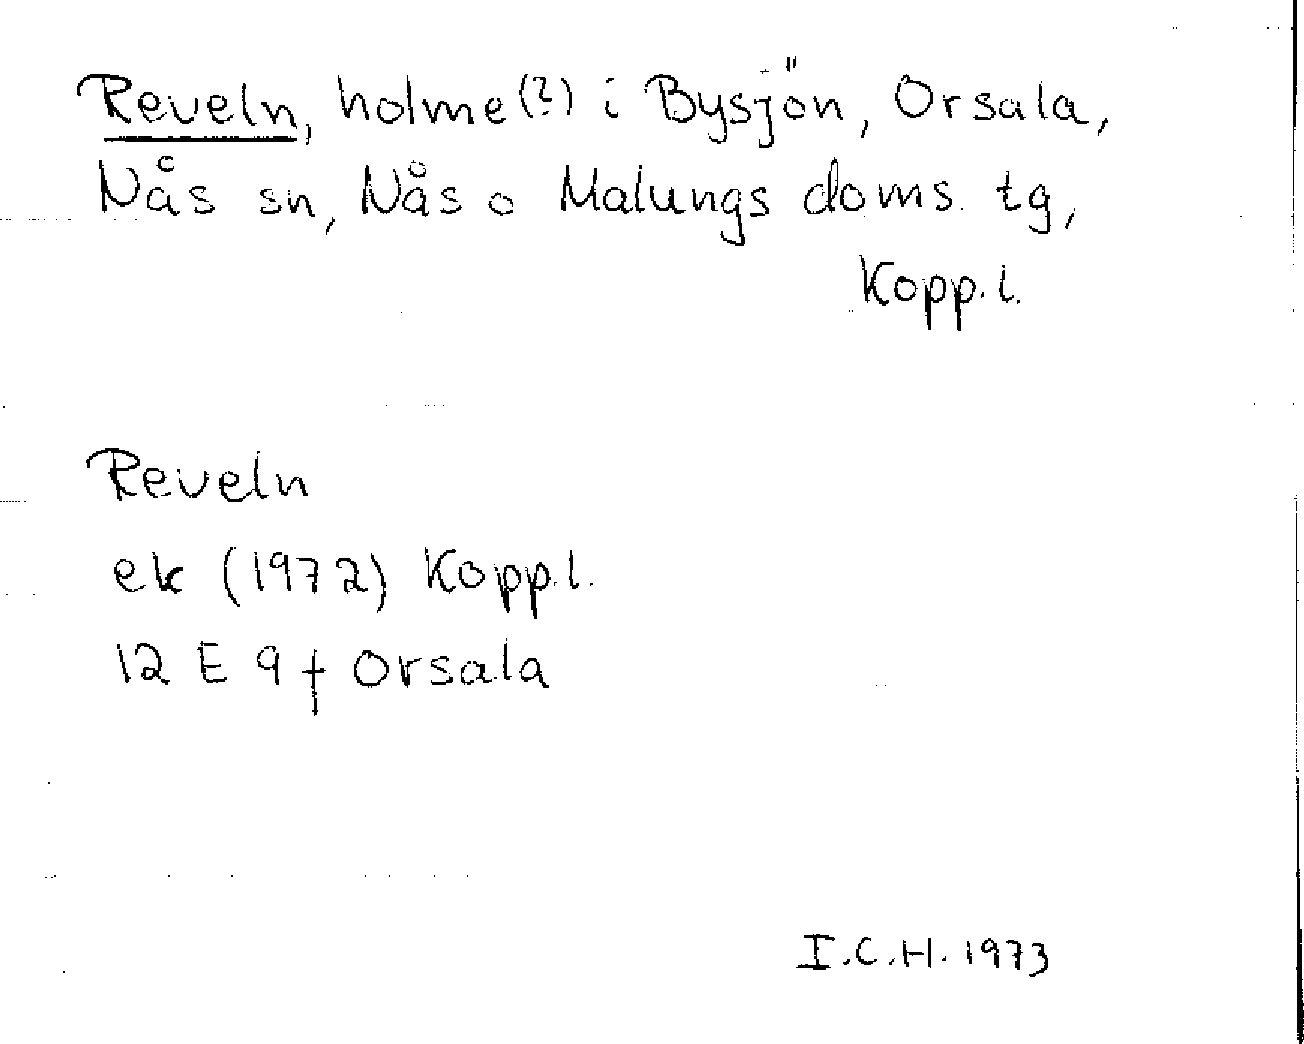 Reveln, holme(?) i Bysjön, Orsala,
Nås sn, Nås o Malungs doms. tg,
Kopp. l.
Reveln
ek (1972) Kopp. l.
12 E 9 f Orsala
I.C.H. 1973